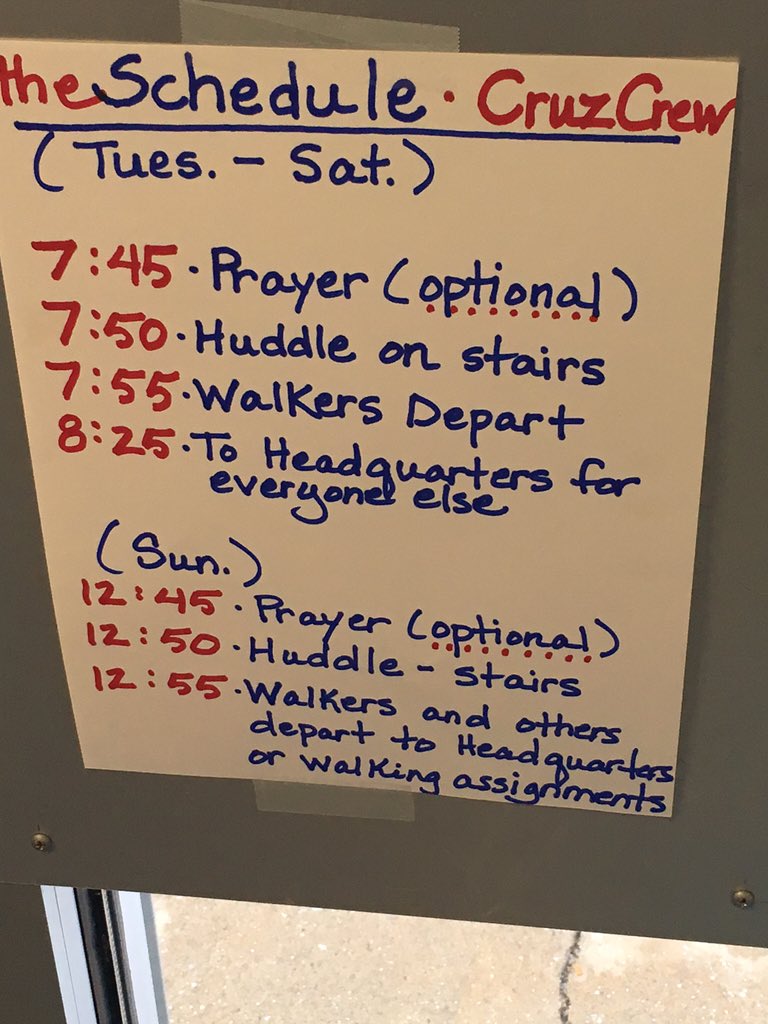 the Schedule · CruzCrew
(Tues. - Sat.)
7:45 · Prayer (optional)
7:50 · Huddle on stairs
7:55 · Walkers Depart
8:25 · To Headquarters for
everyone else
(Sun.)
12:45 · Prayer (optional)
12:50 · Huddle - stairs
12:55 · Walkers and others
depart to Headquarters
or walking assignments